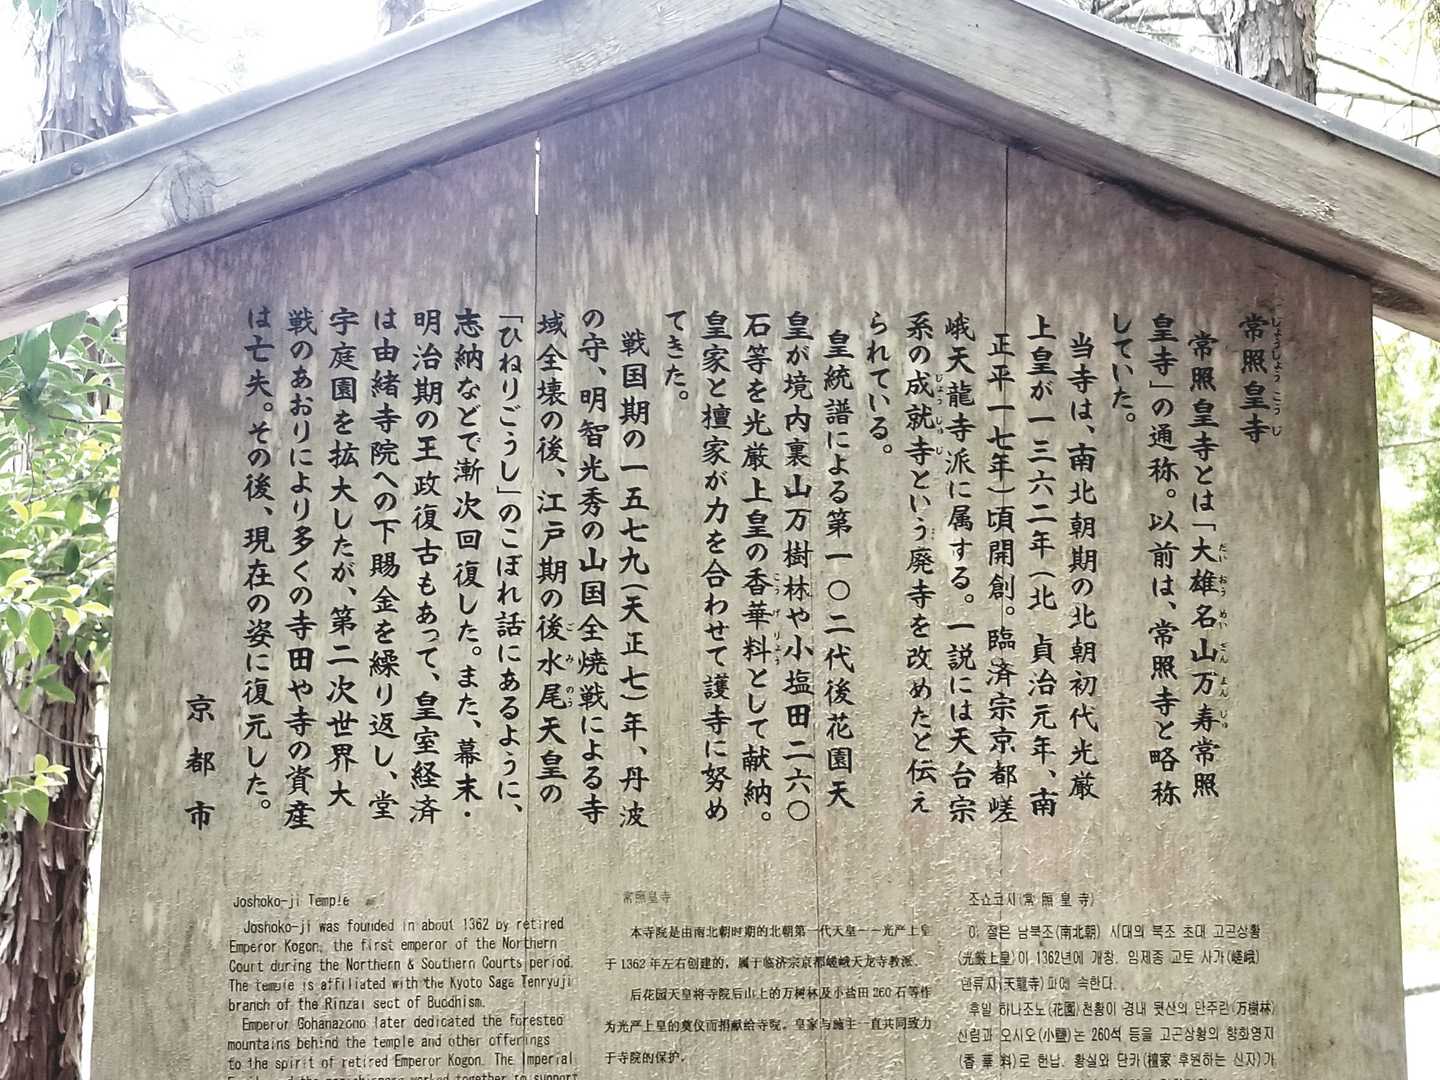 常照皇寺
じょうしょうこうじ
常照皇寺とは「大雄名山万寿常照
だいおうめいざんまんじゅ
皇寺」の通称。以前は、常照寺と略称
していた。
当寺は、南北朝期の北朝初代光厳
上皇が一三六二年(北 貞治元年、南
正平一七年)頃開創。臨済宗京都嵯
峨天龍寺派に属する。一説には天台宗
系の成就寺という廃寺を改めたと伝え
じょうじゅじ
られている。
皇統譜による第一〇二代後花園天
皇が境内裏山万樹林や小塩田二六〇
石等を光厳上皇の香華料として献納。
こうげりょう
皇家と檀家が力を合わせて護寺に努め
てきた。
戦国期の一五七九(天正七)年、丹波
の守、明智光秀の山国全焼戦による寺
域全壊の後、江戸期の後水尾天皇の
ごみのう
「ひねりごうし」のこぼれ話にあるように、
志納などで漸次回復した。また、幕末・
明治期の王政復古もあって、皇室経済
は由緒寺院への下賜金を繰り返し、堂
宇庭園を拡大したが、第二次世界大
戦のあおりにより多くの寺田や寺の資産
は亡失。その後、現在の姿に復元した。
京都市
Joshoko-ji Temple
Joshoko-ji was founded in about 1362 by retired
Emperor Kogon, the first emperor of the Northern
Court during the Northern & Southern Courts period.
The temple is affiliated with the Kyoto Saga Tenryuji
branch of the Rinzai sect of Buddhism.
Emperor Gohanazono later dedicated the forested
mountains behind the temple and other offerings
to the spirit of retired Emperor Kogon. The Imperial
常照皇寺
本寺院是由南北朝时期的北朝第一代天皇——光严上皇
于1362年左右创建的，属于临济宗京都嵯峨天龙寺教派。
后花园天皇将寺院后山上的万树林及小盐田260石等作
为光严上皇的奠仪而捐献给寺院。皇家与施主一直共同致力
于寺院的保护。
조쇼코시(常照皇寺)
이 절은 남북조(南北朝) 시대의 북조 초대 고곤상황
(光厳上皇)이 1362년에 개창. 임제종 교토 사가(嵯峨)
텐류지(天龍寺)파에 속한다.
후일 하나조노(花園)천황이 경내 뒷산의 만주린(万樹林)
신림과 오시오(小鹽)는 260석 등을 고곤상황의 향화영지
(香華料)로 헌납. 황실와 단카(檀家 후원하는 신자)가